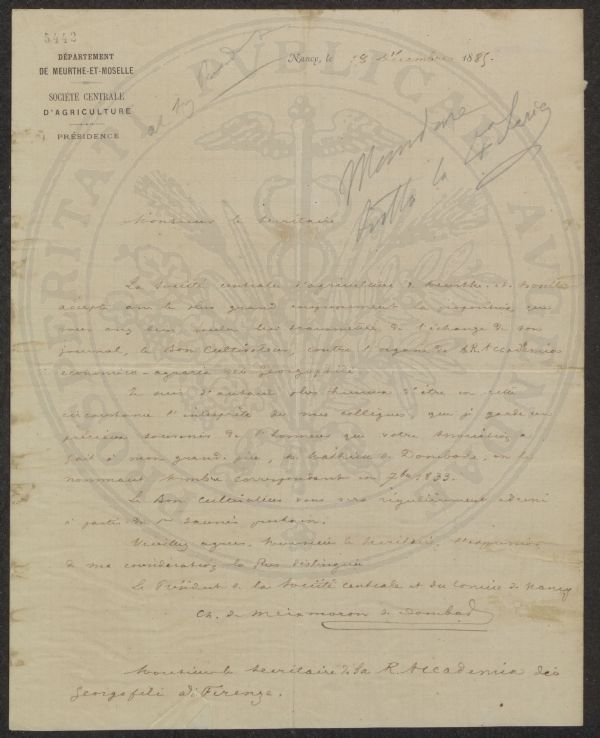 5442
DÉPARTEMENT
DE MEURTHE-ET-MOSELLE
SOCIÉTÉ CENTRALE
D'AGRICULTURE
PRÉSIDENCE
Nancy, le 1885.
Mandare
la
Monsieur le Secrétaire
La Société centrale d'agriculture de Meurthe-et-Moselle
accepte avec le plus grand empressement la proposition que
vous avez bien voulu lui transmettre de l'échange de son
journal, le Bon Cultivateur, contre l'organe de la R. Accademia
economico-agraria dei Georgofili.
Je suis d'autant plus heureux d'être en cette
circonstance l'interprète de mes collègues que je garde un
précieux souvenir de l'honneur que votre association a
fait à mon grand-père, de Mathieu de Dombasle, en le
nommant membre correspondant en 7bre 1833.
Le Bon Cultivateur vous sera régulièrement adressé
à partir du 1er Janvier prochain.
Veuillez agréer, Monsieur le Secrétaire, l'expression
de ma considération la plus distinguée
Le Président de la Société centrale et du Comice de Nancy
Ch. de Meixmoron de Dombasle
Monsieur le Secrétaire de la R. Accademia dei
Georgofili di Firenze.